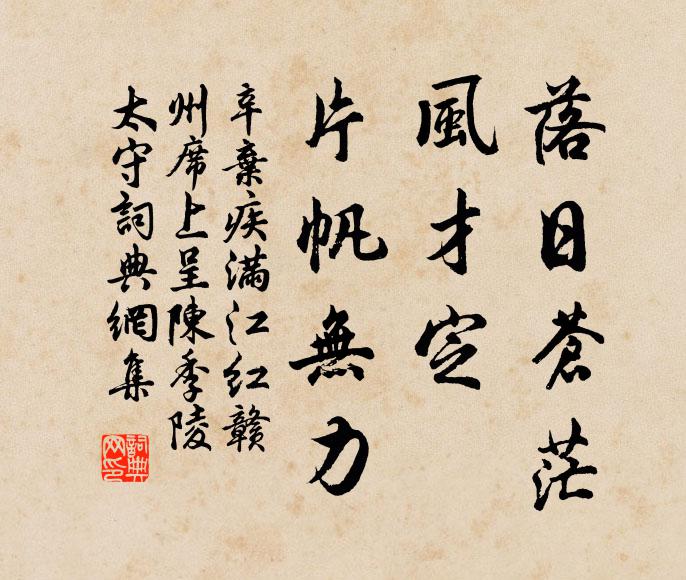 落日蒼茫
風才定
片帆無力
辛棄疾滿江红贛
州席上呈陳季陵
太守詞典網集
詞典网印